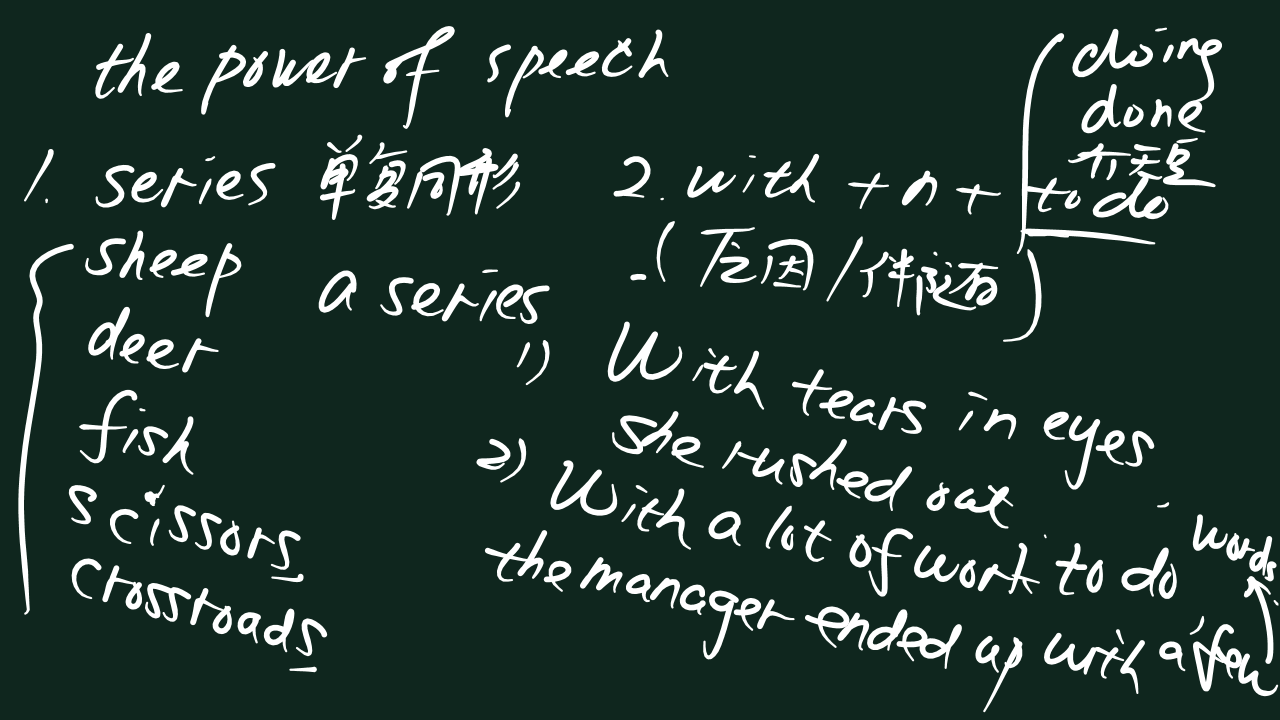 the power of speech
1. series 单复同形
sheep
a series
deer
fish
scissors
crossroads
2. with + n +
doing
done
to do
( 原因 / 伴随 )
1) With tears in eyes
she rushed out
2) With a lot of work to do
the manager ended up with a few
words